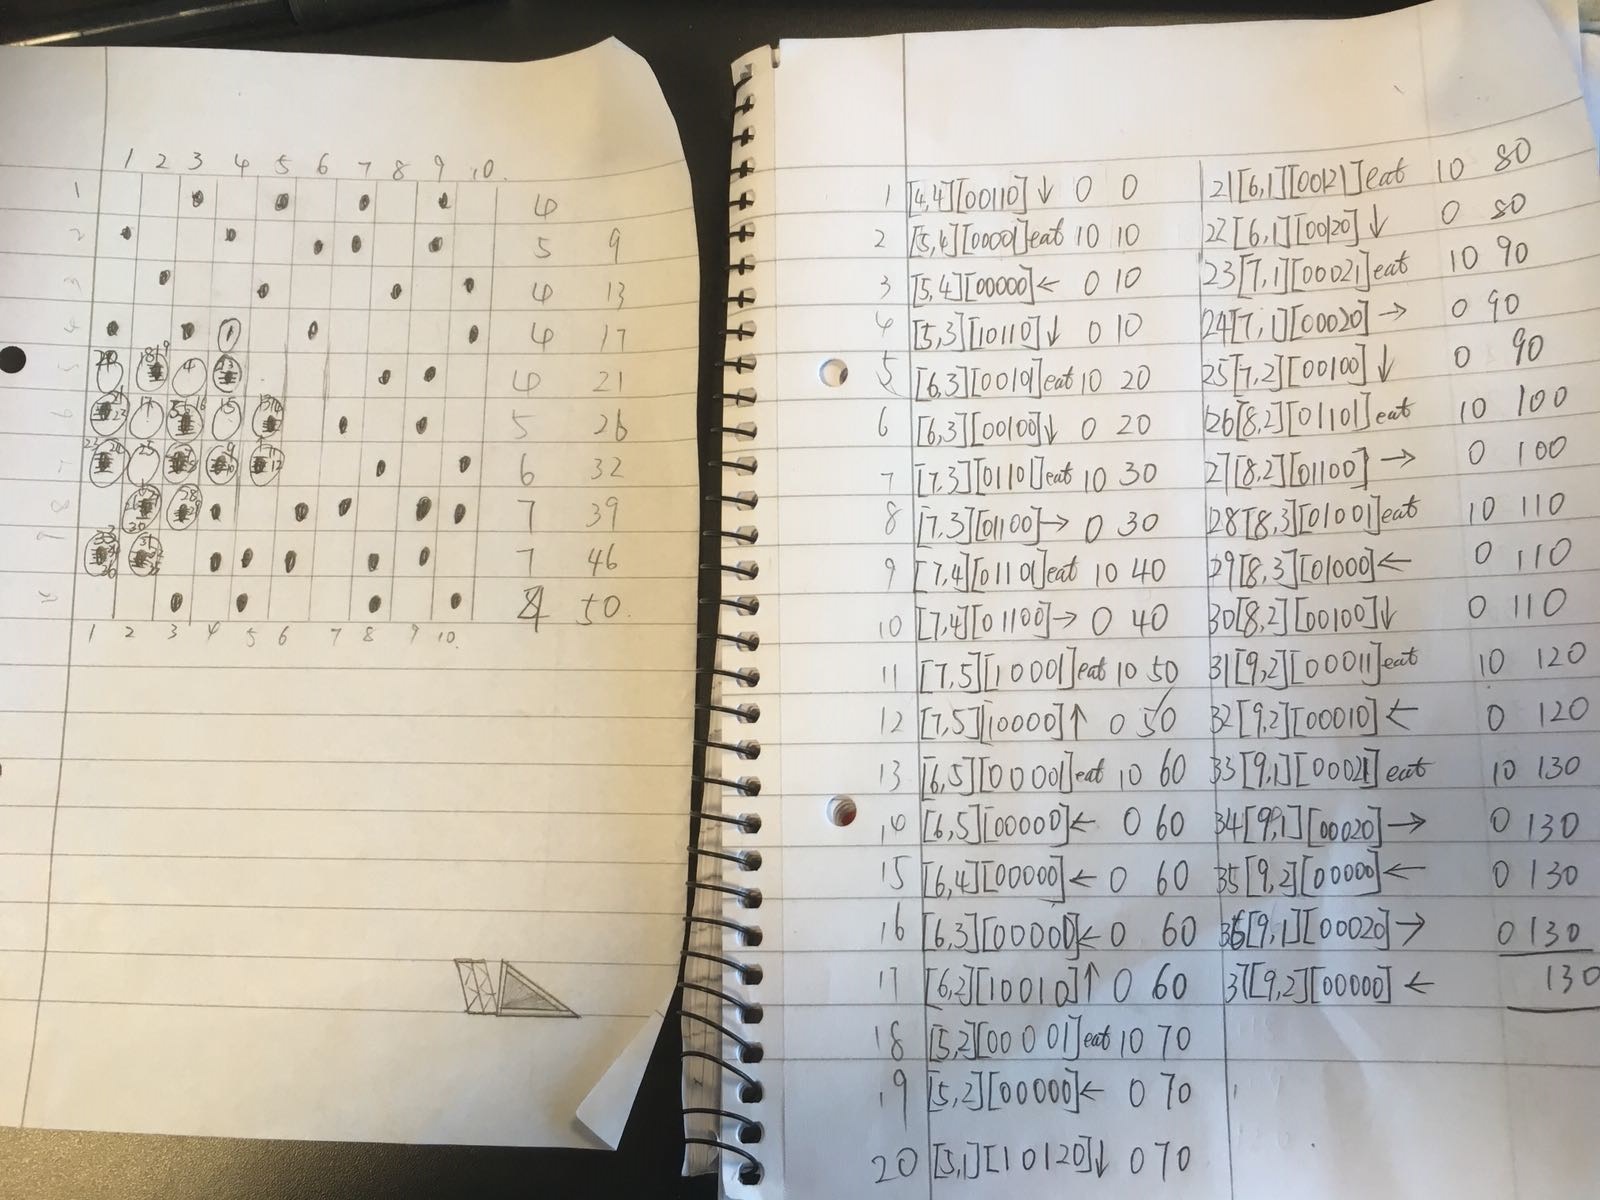 1 2 3 4 5 6 7 8 9 10.
1 4
2 5 9
3 4 13
4 1 4 17
5 4 4 21
6 17 15 5 26
7 25 6 32
8 7 39
9 7 46
4 50.
1 2 3 4 5 6 7 8 9 10.
1 [4,4][00110] ↓ 0 0
2 [5,4][00001]eat 10 10
3 [5,4][00000]← 0 10
4 [5,3][10110]↓ 0 10
5 [6,3][00101]eat 10 20
6 [6,3][00100]↓ 0 20
7 [7,3][01101]eat 10 30
8 [7,3][01100]→ 0 30
9 [7,4][01101]eat 10 40
10 [7,4][01100]→ 0 40
11 [7,5][10001]eat 10 50
12 [7,5][10000]↑ 0 50
13 [6,5][00001]eat 10 60
14 [6,5][00000]← 0 60
15 [6,4][00000]← 0 60
16 [6,3][00000]← 0 60
17 [6,2][10010]↑ 0 60
18 [5,2][00001]eat 10 70
19 [5,2][00000]← 0 70
20 [5,1][10120]↓ 0 70
21 [6,1][00121]eat 10 80
22 [6,1][00120]↓ 0 80
23 [7,1][00021]eat 10 90
24 [7,1][00020] → 0 90
25 [7,2][00100]↓ 0 90
26 [8,2][01101]eat 10 100
27 [8,2][01100] → 0 100
28 [8,3][01001]eat 10 110
29 [8,3][01000]← 0 110
30 [8,2][00100]↓ 0 110
31 [9,2][00011]eat 10 120
32 [9,2][00010]← 0 120
33 [9,1][00021]eat 10 130
34 [9,1][00020]→ 0 130
35 [9,2][00000]← 0 130
36 [9,1][00020]→ 0 130
37 [9,2][00000]← 130